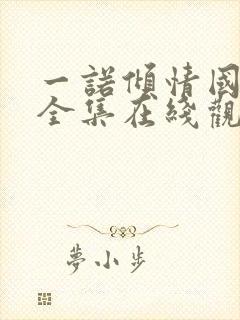 一諾傾情國
全集在綫觀
夢小步